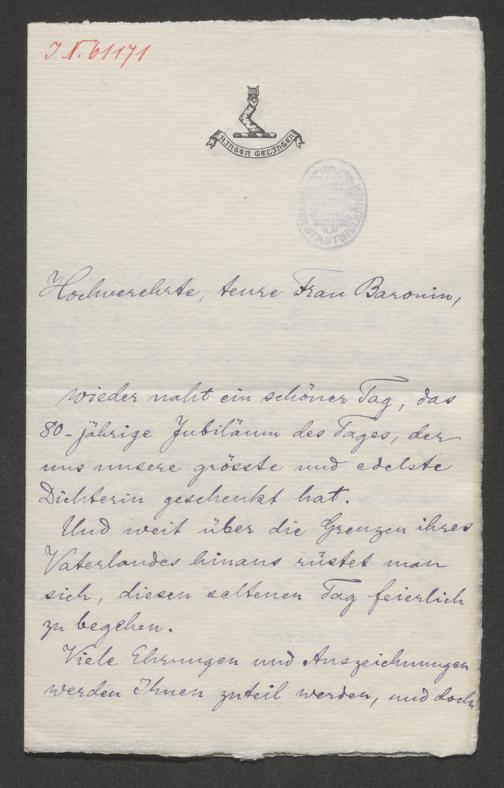 J.N. 61171
RINGEN GELINGEN
Hochverehrte, teure Frau Baronin,
wieder naht ein schöner Tag, das
80-jährige Jubiläum des Tages, der
uns unsere grösste und edelste
Dichterin geschenkt hat.
Und weit über die Grenzen ihres
Vaterlandes hinaus rüstet man
sich, diesen seltenen Tag feierlich
zu begehen.
Viele Ehrungen und Auszeichnungen
werden Ihnen zuteil werden, und doch